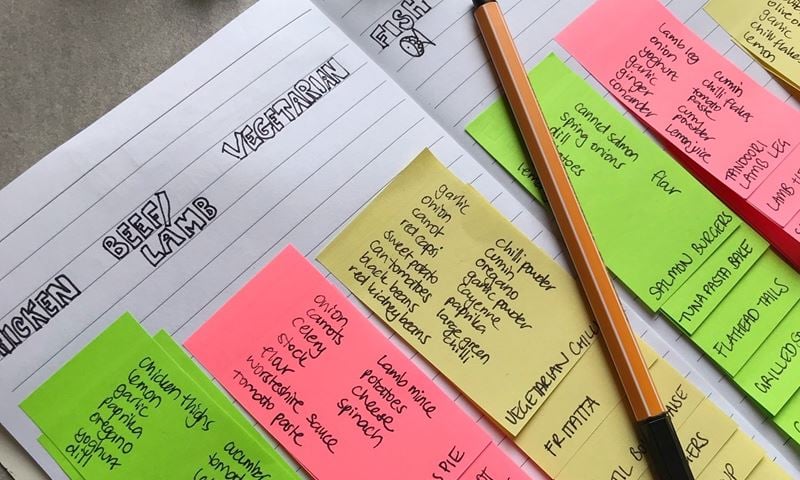 CHICKEN
BEEF/
LAMB
VEGETARIAN
FISH
Chicken thighs
lemon
garlic
paprika
oregano
yoghurt
dill
cucumber
Onion
carrots
celery
stock
flar
worsteshire sauce
Tomato paste
Lamb mince
potatoes
cheese
spinach
PIE
garlic
onion
carrot
red caps
sweet potato
can tomatoes
black beans
red kidney beans
chilli powder
cumin
oregano
garlic powder
cayenne
paprika
large green
chilli
VEGETARIAN CHILLI
FRITTATA
canned salmon
spring onions
dill
flar
SALMON BURGERS
TUNA PASTA BAKE
FLATHEAD TAILS
GRILLED
Lamb leg
onion
yoghurt
garlic
ginger
coriander
cumin
chilli flakes
tomato
paste
powder
Lemon juice
TANDOORI
LAMB LEG
garlic
chilli flakes
lemon